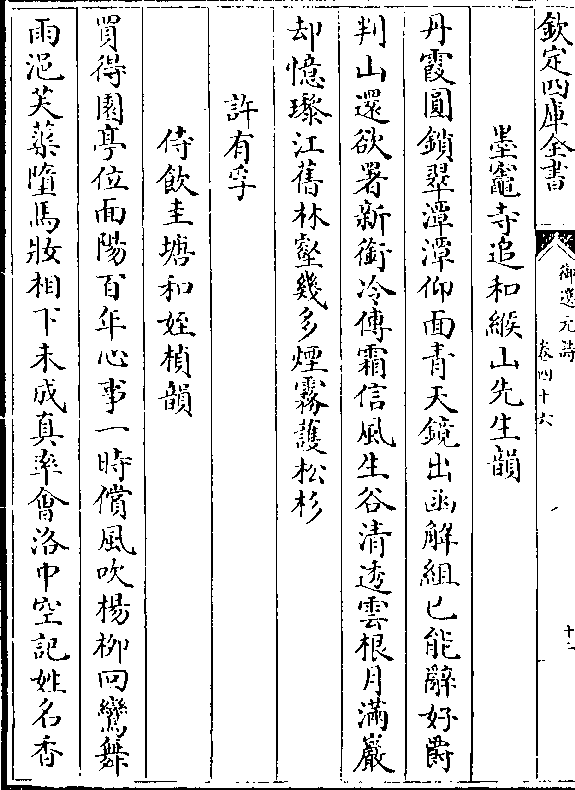 欽定四庫全書
御選元詩
卷四十六
十二
墨竈寺追和緱山先生韻
丹霞圓鎖翠潭潭仰面青天鏡出函解組已能辭好爵
判山還欲署新銜冷傳霜信風生谷清透雲根月滿巖
却憶瓈江舊林壑幾多煙霧護松杉
許有孚
侍飲圭塘和姪楨韻
買得園亭位面陽百年心事一時償風吹楊栁回鸞舞
雨浥芙蕖墮馬妝相下未成真率會洛中空記姓名香